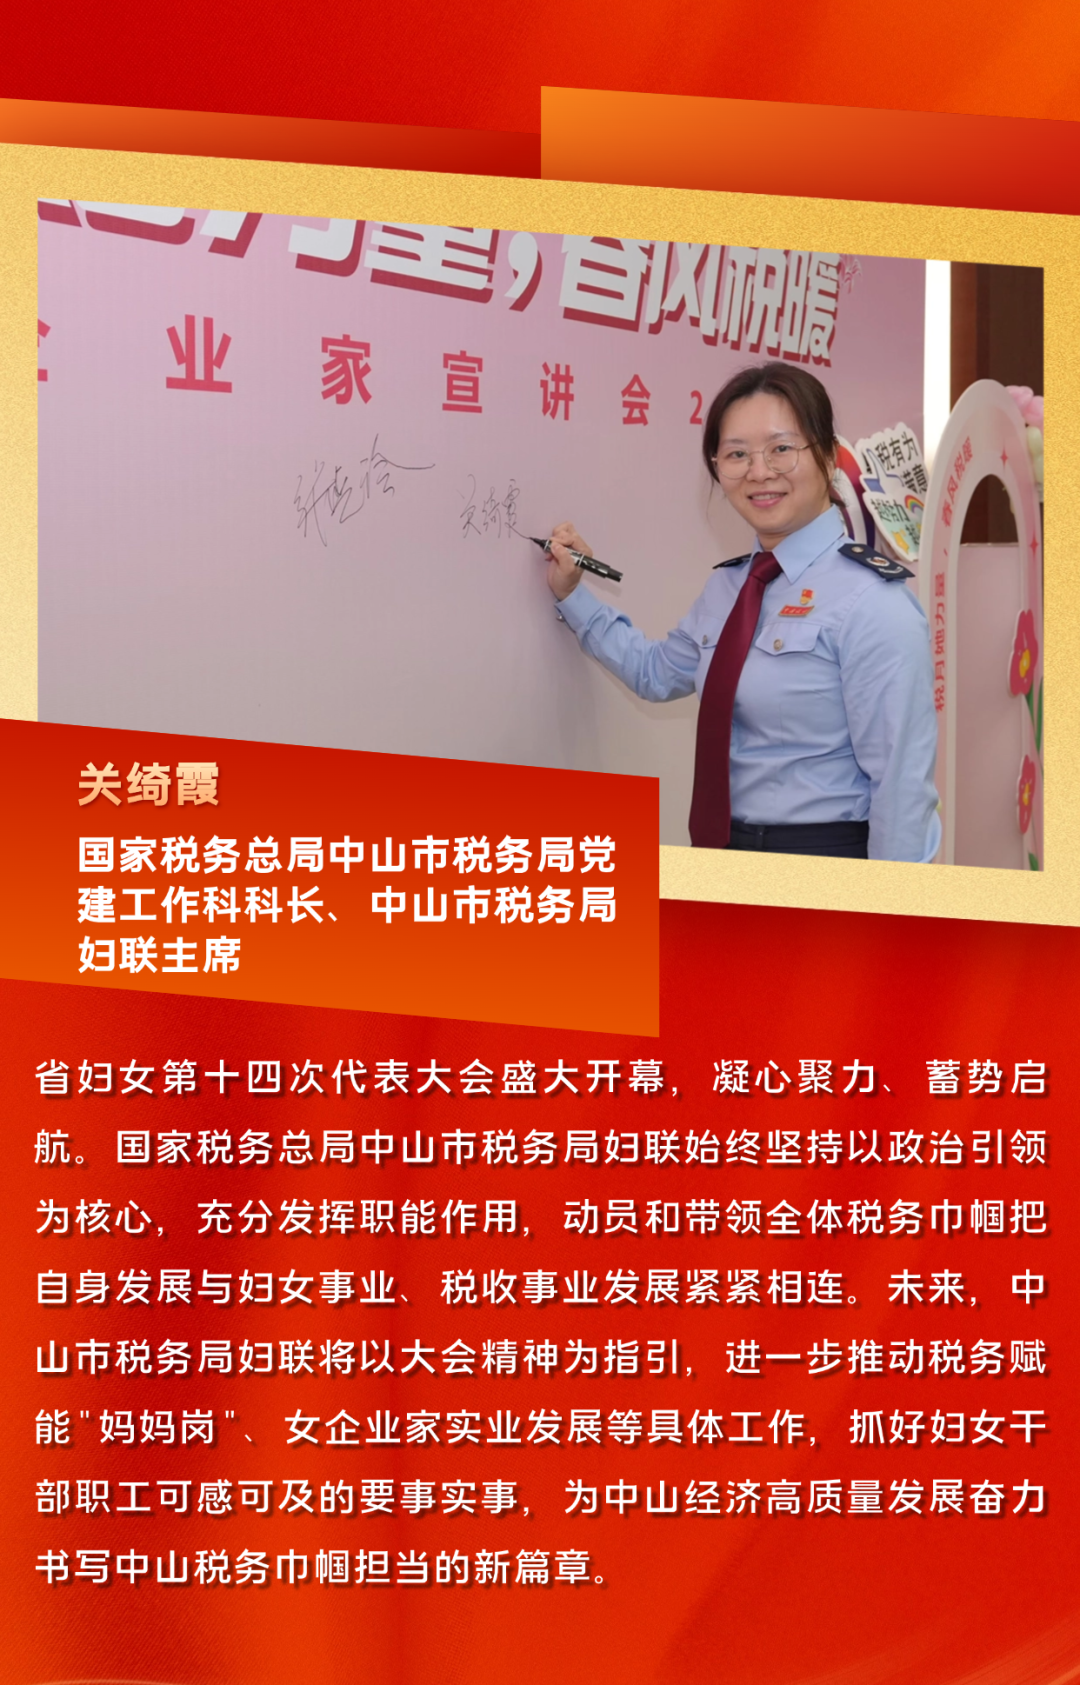 量，春风税暖
企业家宣讲会2
关绮霞
税有为
春风税暖
关绮霞
国家税务总局中山市税务局党
建工作科科长、中山市税务局
妇联主席
省妇女第十四次代表大会盛大开幕，凝心聚力、蓄势启
航。国家税务总局中山市税务局妇联始终坚持以政治引领
为核心，充分发挥职能作用，动员和带领全体税务巾帼把
自身发展与妇女事业、税收事业发展紧紧相连。未来，中
山市税务局妇联将以大会精神为指引，进一步推动税务赋
能"妈妈岗"、女企业家实业发展等具体工作，抓好妇女干
部职工可感可及的要事实事，为中山经济高质量发展奋力
书写中山税务巾帼担当的新篇章。